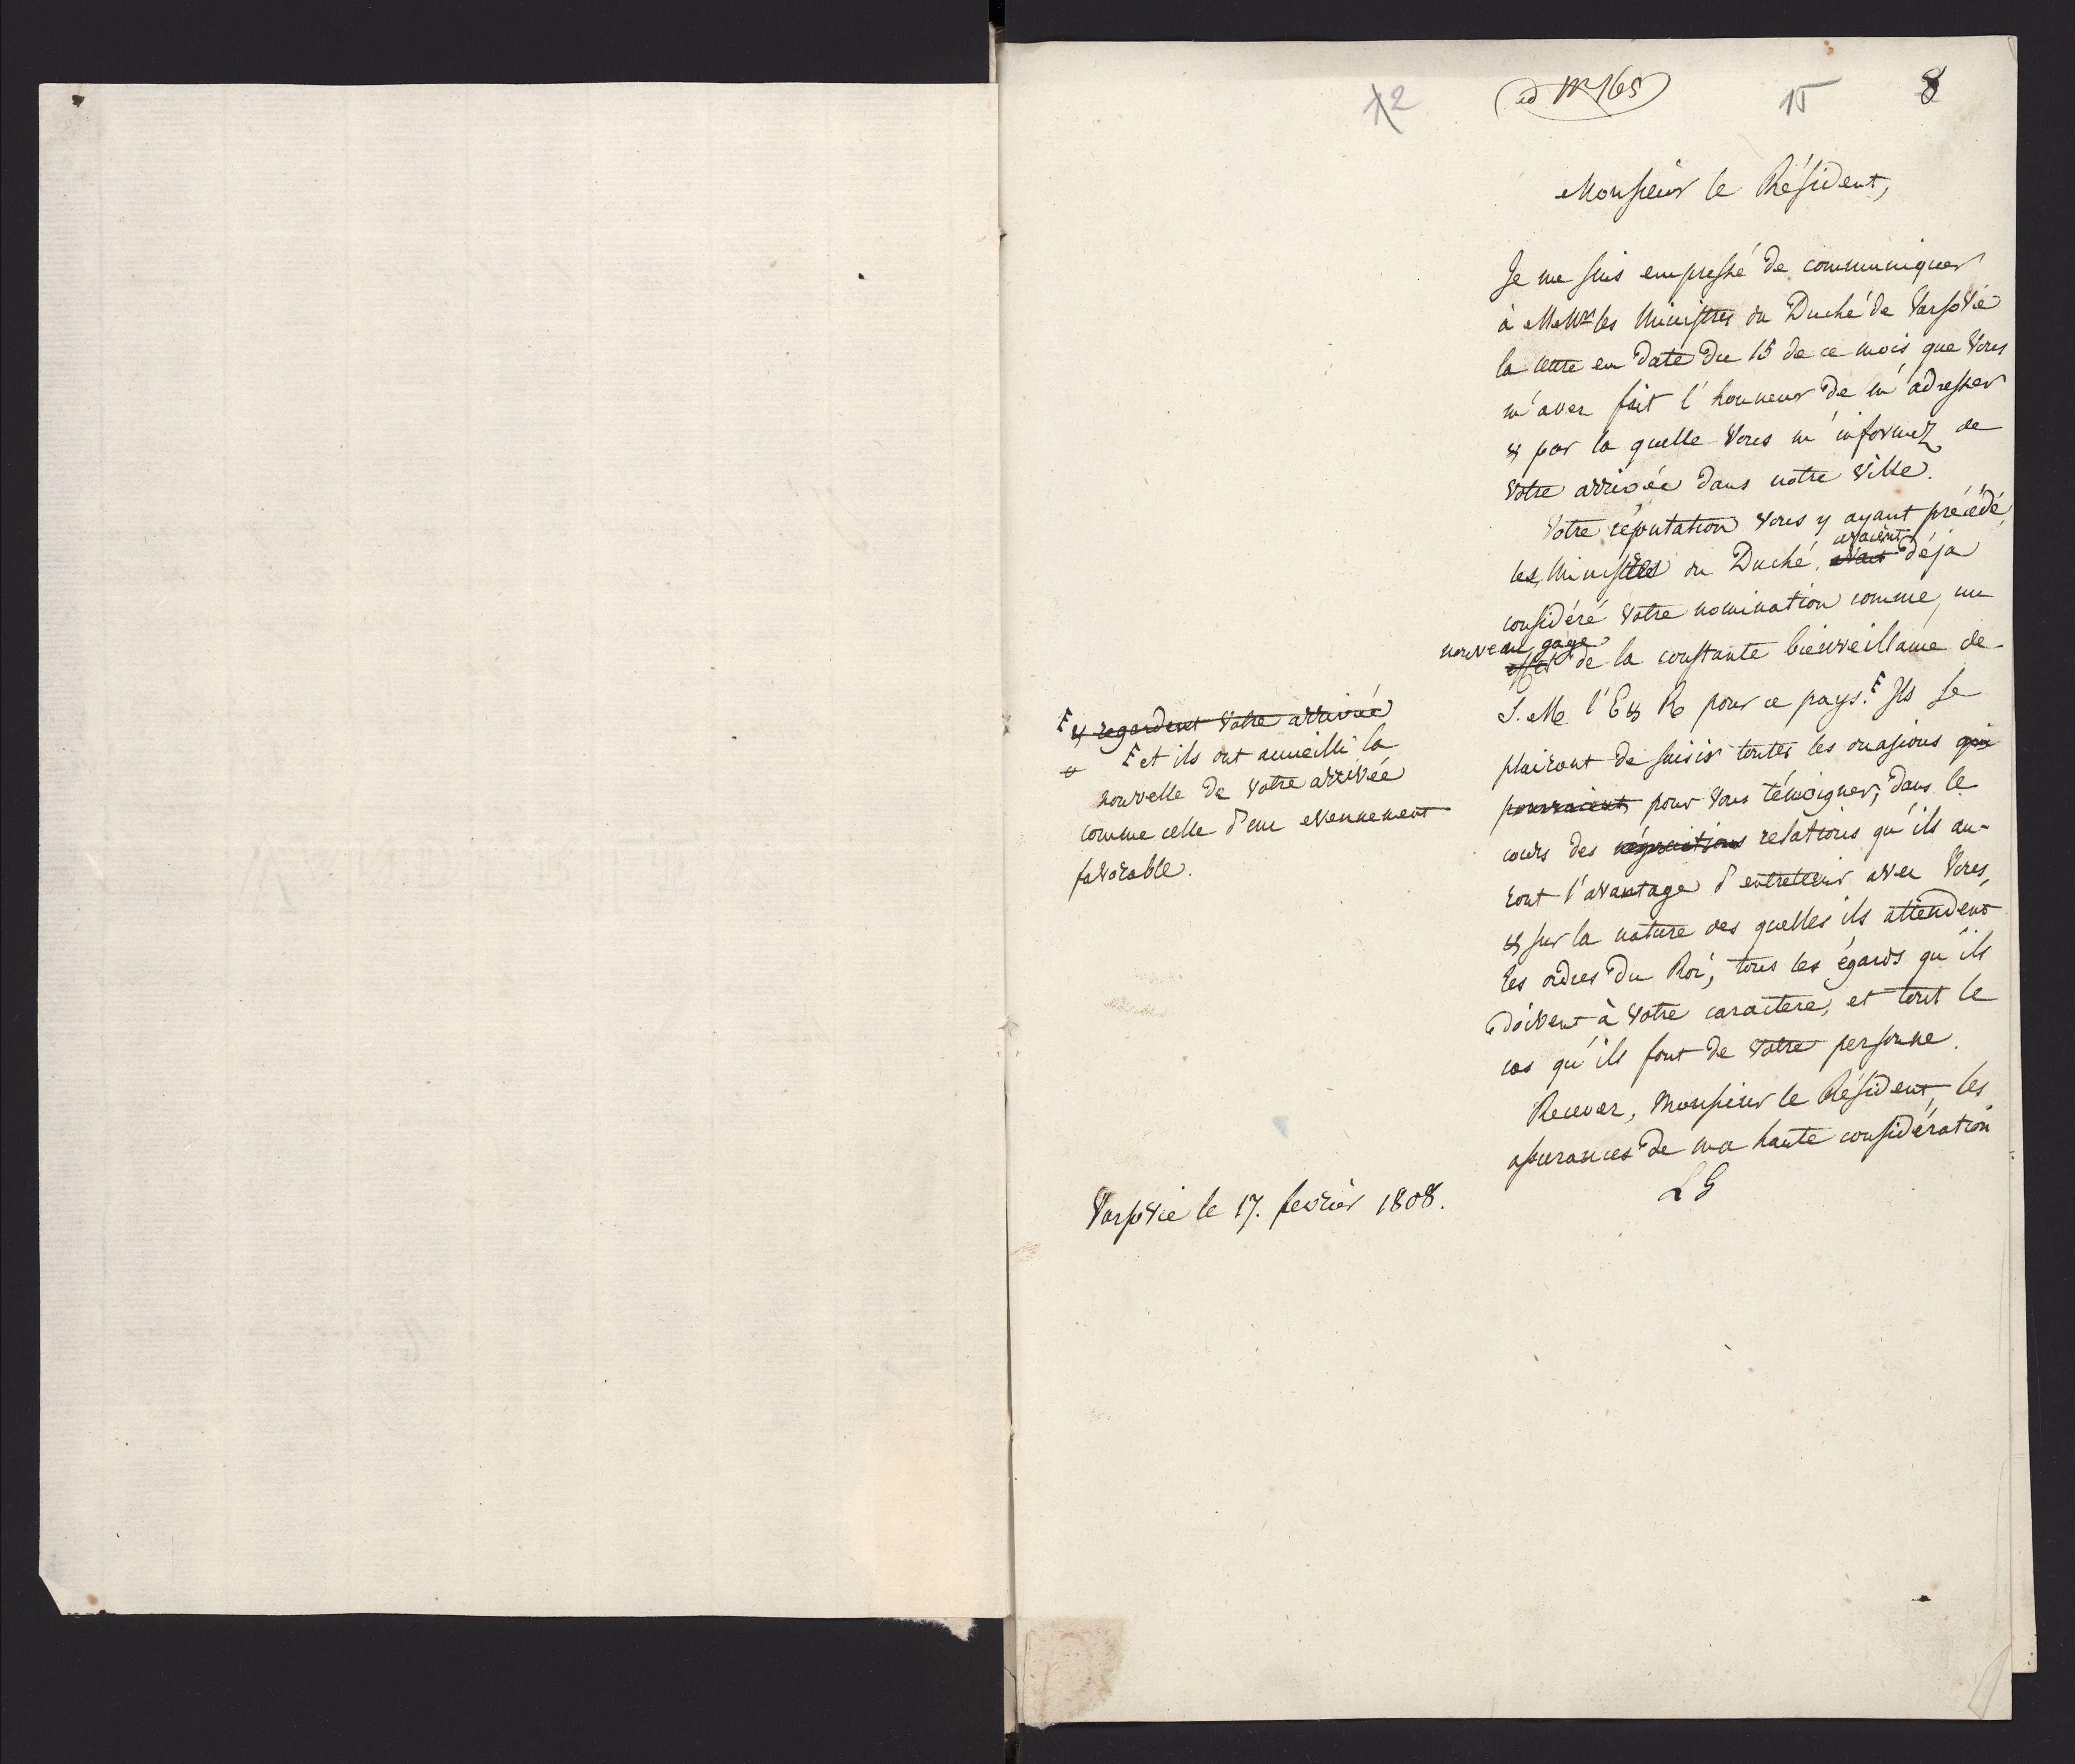 12
ad Nr 165
15
8
Monsieur le Résident,
Je me suis empressé de communiquer
à MMrs les Ministres du Duché de Varsovie
la lettre en date du 15 de ce mois que Vous
m'avez fait l'honneur de m'adresser
& par la quelle Vous m'informez de
Votre arrivée dans notre Ville.
Votre réputation Vous y ayant précédé,
avaient
les Ministres du Duché, déja
considéré Votre nomination comme un
nouveau gage
effet de la constante bienveillance de
S. M. l'E & R pour ce pays. F Ils se
plairont de saisir toutes les occasions qui
pourraient pour Vous témoigner, dans le
cours des négociations relations qu'ils au-
ront l'avantage d'entretenir avec Vous,
& sur la nature des quelles ils attendent
les ordres du Roi, tous les égards qu'ils
doivent à Votre caractere, et tout le
cas qu'ils font de Votre personne.
Recevez, Monsieur le Résident, les
assurances de ma haute considération
LG
F & regardent Votre arrivée
F et ils ont accueilli la
nouvelle de Votre arrivée
comme celle d'un evennement
favorable.
Varsovie le 17. fevrier 1808.